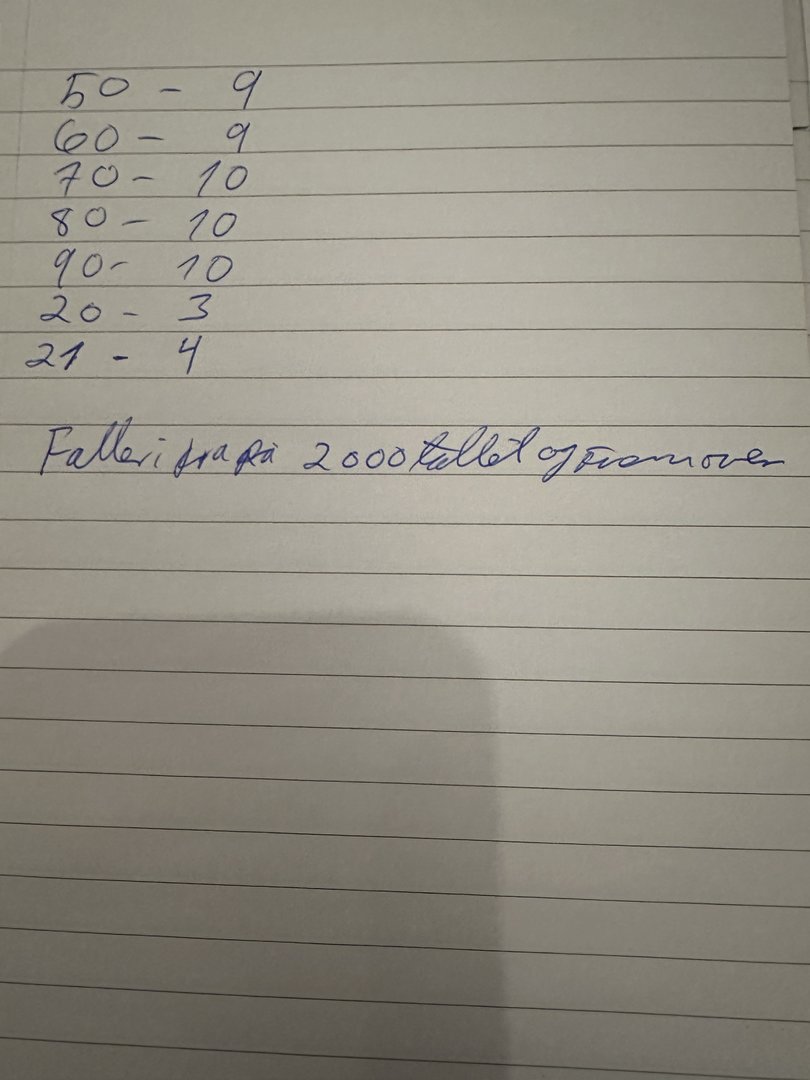 50 - 9
60 - 9
70 - 10
80 - 10
90 - 10
20 - 3
21 - 4
Faller i fra på 2000 tallet og framover